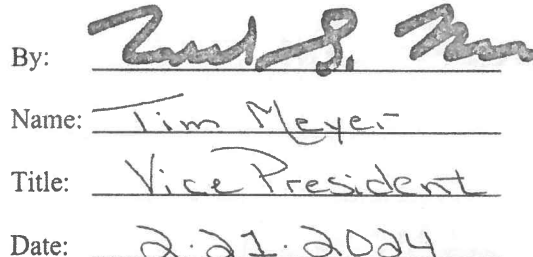 By:
Name: Tim Meyer
Title: Vice President
Date: 2.21.2024